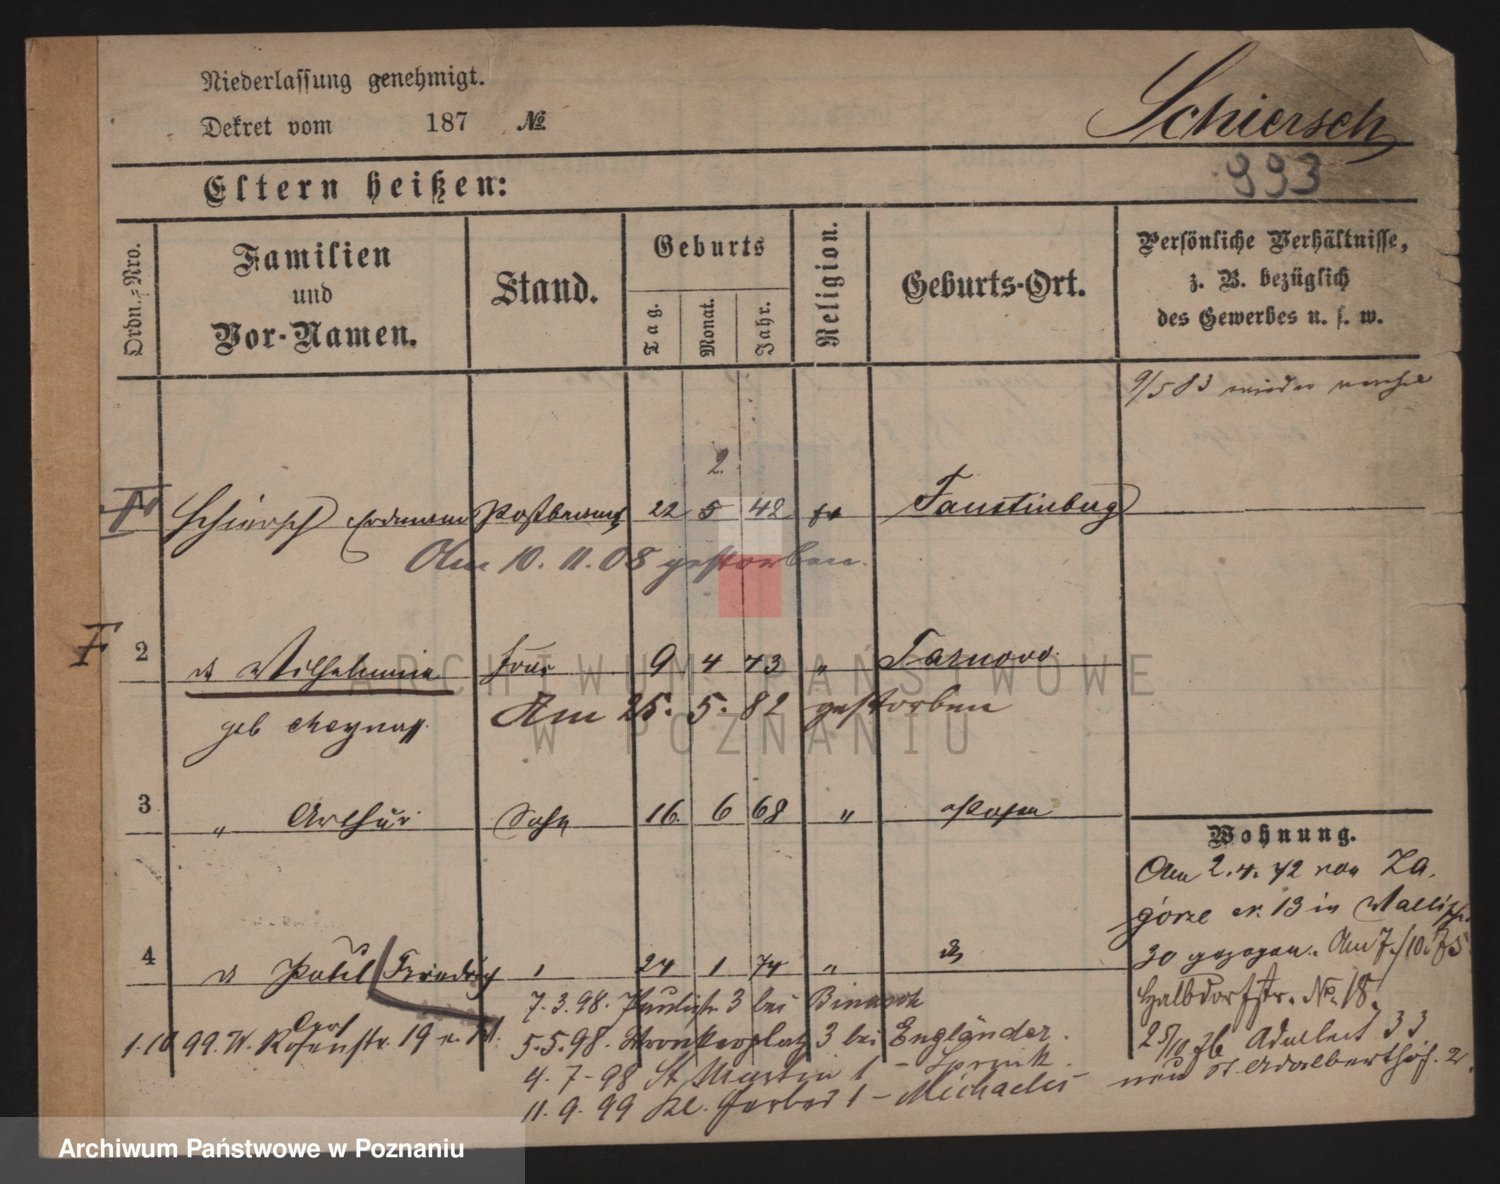 Niederlassung genehmigt.
Dekret vom 187 №
Schiersch
993
Eltern heißen:
Ordn.-Nro.
Familien
und
Vor-Namen.
Stand.
Geburts
Tag.
Monat.
Jahr.
Religion.
Geburts-Ort.
Persönliche Verhältnisse,
z. B. bezüglich
des Gewerbes u. s. w.
9/5 83 wieder
2.
1 Schiersch Erdmann Postbeamt 22 5 42 Faustinberg
Am 10. 11. 08 gestorben.
F 2 Wilhelmine Frau 9 4 43 " Tarnowo
geb Am 25. 5. 82 gestorben
3 " Arthur Sohn 16 6 68 " Posen
Wohnung.
Am 2. 4. 72 von Za-
górze N. 13 in Wallisch.
4 Paul Friedrich 24 1 74 "
30 gezogen. Am 7/10. 75
Halbdorfstr. No. 18.
7. 3. 98. Paulistr 3 bei
1. 10 99. W. Rosenstr. 19 5. 5. 98. Wronkerplatz 3 bei Engländer.
25/10 76 Adalbert 33
4. 7 - 98 St Martin 1 -
neu St Adalberthof. 2.
11. 9. 99 Kl. Gerber 1 - Michaelis
ARCHIWUM PAŃSTWOWE
W POZNANIU
Archiwum Państwowe w Poznaniu